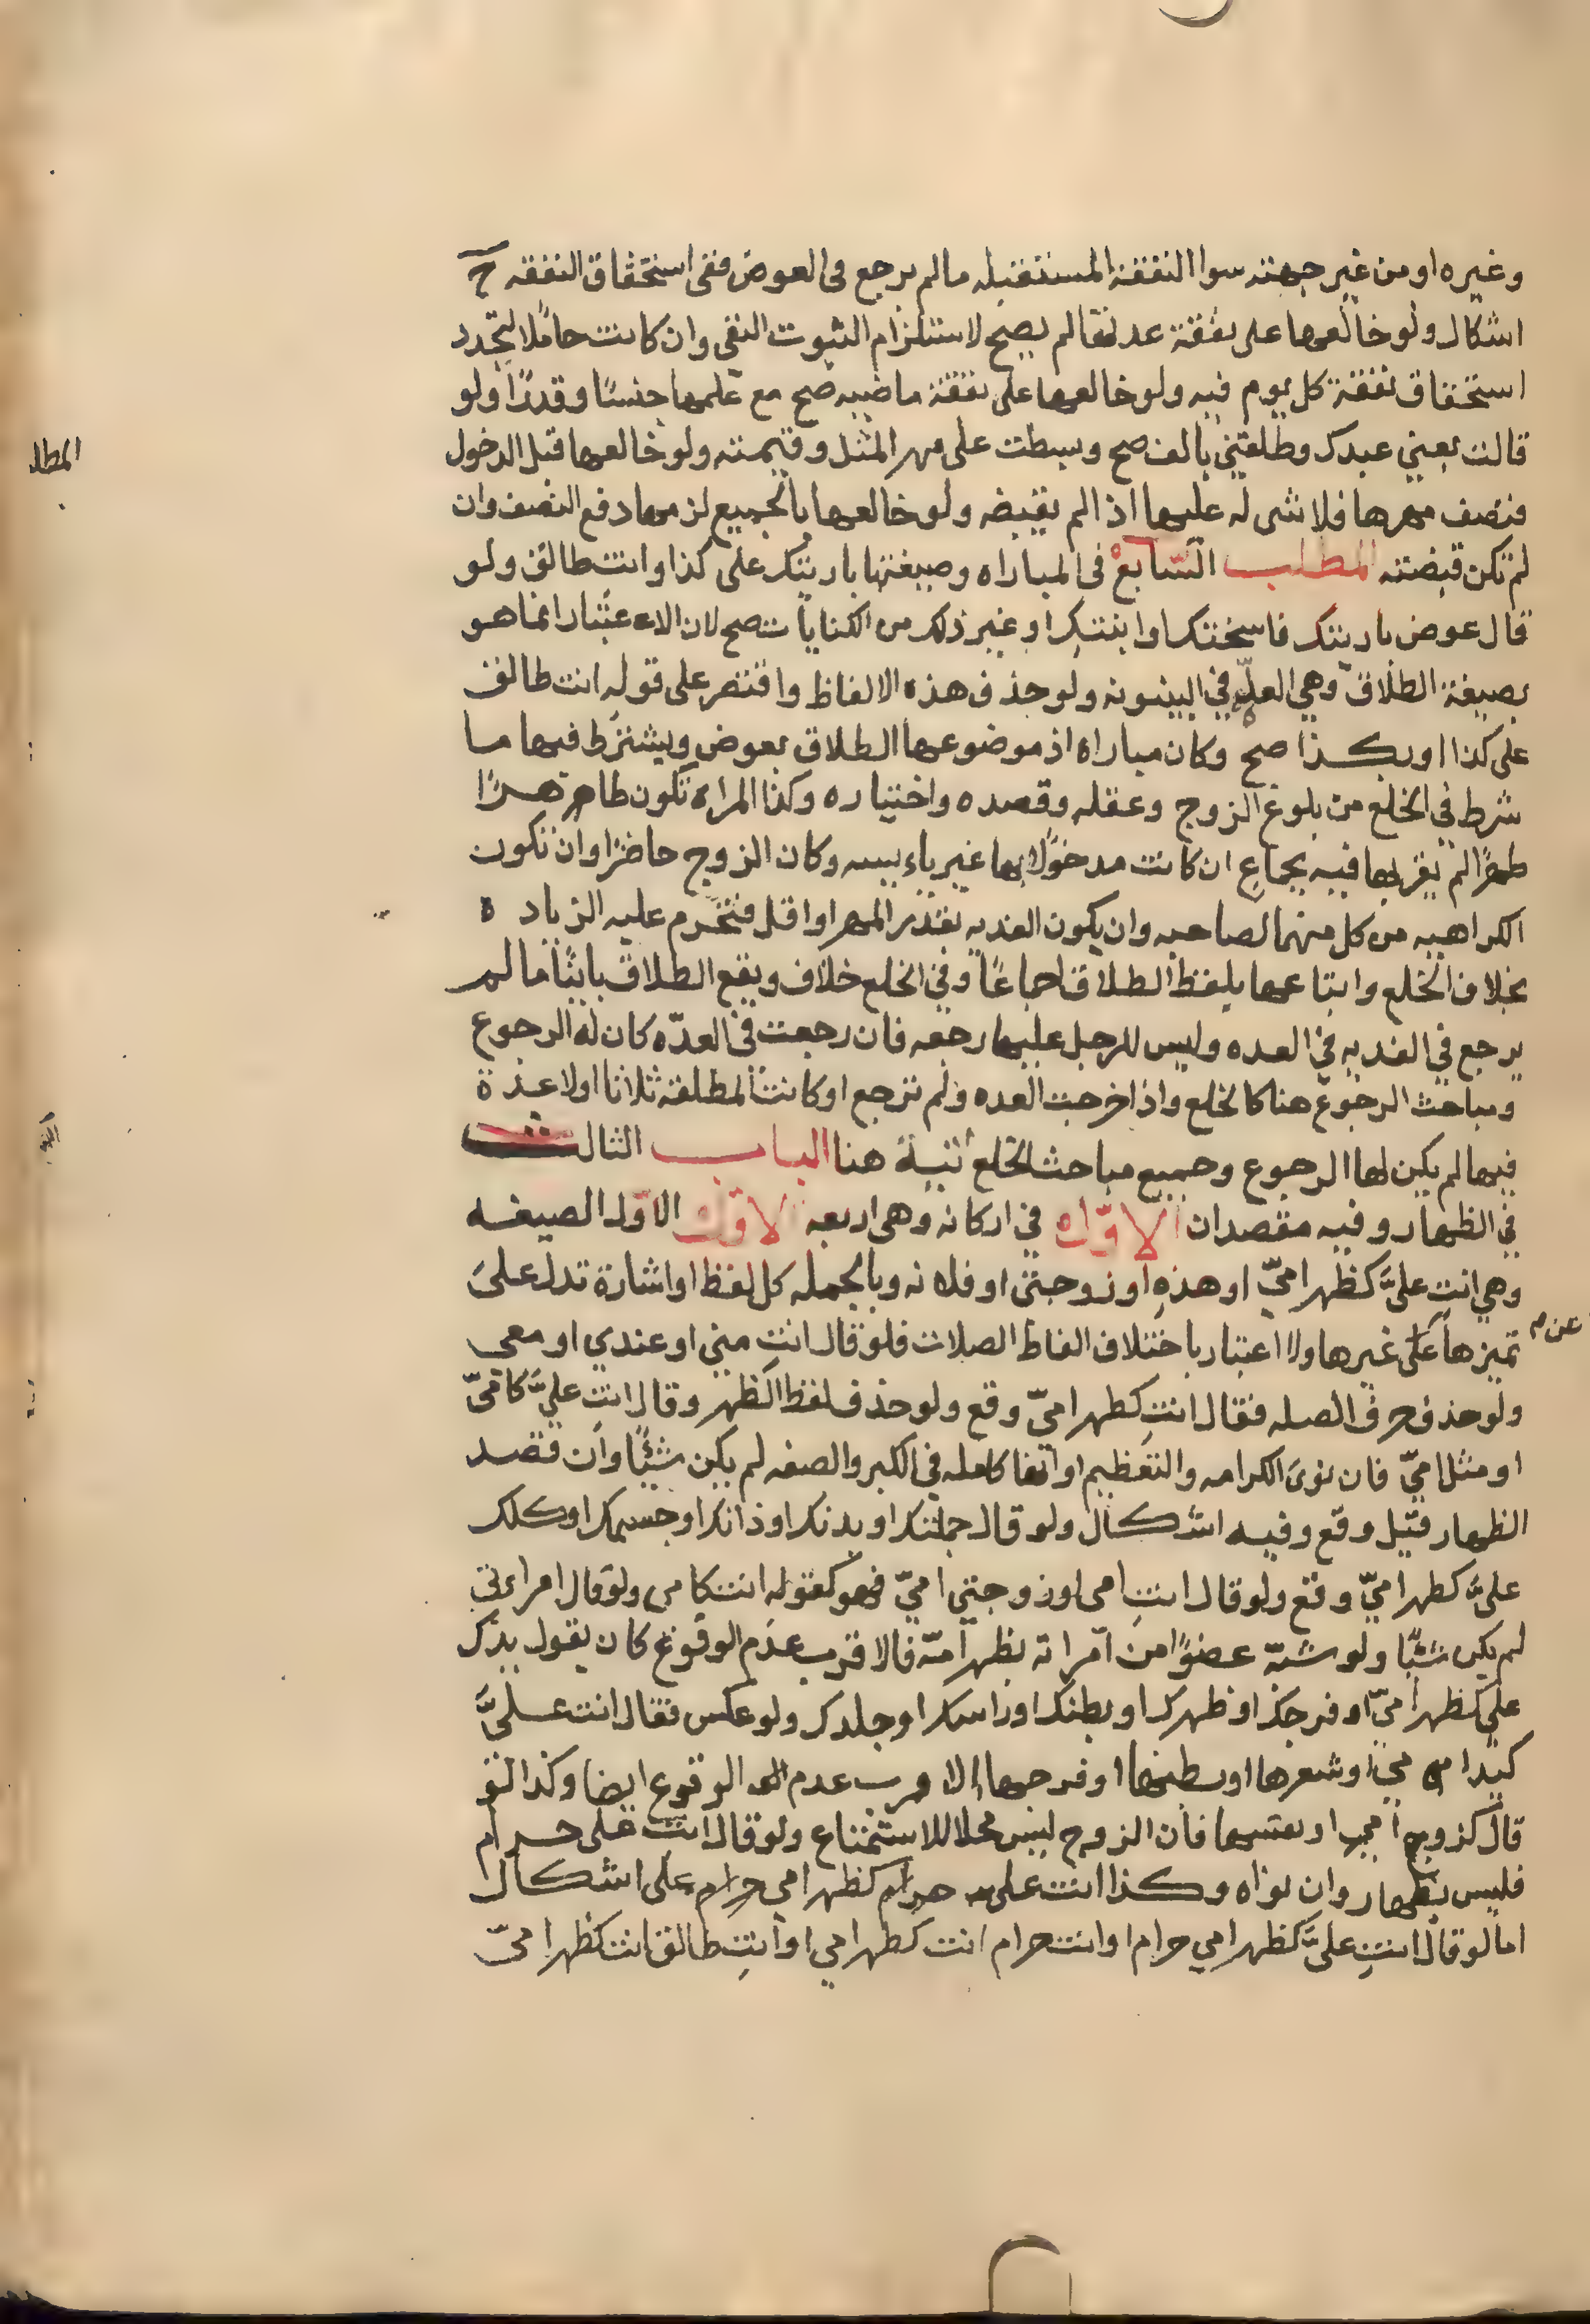 وغيره او من غير جهته سوا النفقة المستقبله مالم يرجع في العوض ففي استحقاق النفقه ح
اشكال ولو خالعها على نفقة عدتها لم يصح لاستلزام الثبوت النفي وان كانت حاملا لتجدد
استحقاق نفقة كل يوم فيه ولو خالعها على نفقة ماضيه صح مع علمها جنسًا وقدرًا ولو
قالت بعني عبدك وطلقني بالف صح وبسطت على مهر المثل وقيمته ولو خالعها قبل الدخول
فنصف مهرها فلا شى له عليها اذا لم يقبضه ولو خالعها بالجميع لزمها دفع النصف وان
لم تكن قبضته المطلب السّابع في المباراه وصيغتها بارئتك على كذا وانت طالق ولو
قال عوض بارئتك فاسختك او ابنتك او غير ذلك من الكنايات صح لان الاعتبار انما هو
بصيغة الطلاق وهي العلّه في البينونه ولو حذف هذه الالفاظ واقتصر على قوله انت طالق
على كذا او بكذا صح وكان مباراة اذ موضوعها الطلاق بعوض ويشترط فيها ما
شرط في الخلع من بلوغ الزوج وعقله وقصده واختياره وكذا المراه تكون طاهرًا
طهرًا لم يقربها فيه بجماع ان كانت مدخولا بها غير يايسه وكان الزوج حاضرًا وان تكون
الكراهيه من كل منهما لصاحبه وان يكون الفديه بقدر المهر او اقل فتحرم عليه الزياده
بخلاف الخلع واتباعها بلفظ الطلاق اجماعًا وفي الخلع خلاف ويقع الطلاق باينًا مالم
يرجع في الفديه في العده وليس للرجل عليها رجعه فان رجعت في العدّه كان له الرجوع
ومباحث الرجوع هنا كالخلع واذا خرجت العده ولم ترجع او كانت المطلقة ثلاثا اولا عدة
فيها لم يكن لها الرجوع وجميع مباحث الخلع اتية هنا الباب الثالث
في الظهار وفيه مقصدان الاوّل في اركانه وهي اربعه الاوّل الاوّل الصيغه
وهي انتِ عليَّ كظهر اميّ او هذهِ او زوجتي او فلانه وبالجمله كل لفظ او اشارة تدل على
تميزها على غيرها ولا اعتبار باختلاف الفاظ الصلات فلو قال انتِ مني او عندي او معي
عن م
ولو حذف حرف الصله فقال انتِ كظهر اميّ وقع ولو حذف لفظ الظهر وقال انتِ عليَّ كامّيّ
او مثل اميّ فان نوى الكرامه والتعظيم او انها كامله في الكبر والصفه لم يكن شيئًا وان قصد
الظهار قيل وقع وفيه اشكال ولو قال جملتك او بدنك او ذاتك او جسمك او كلك
عليَّ كظهر اميّ وقع ولو قال انتِ امي او زوجتي اميّ فهو كقوله انت كامي ولو قال امي امراءتي
لم يكن شيئًا ولو شبّه عضوًا من امراته بظهر امّه فالاقرب عدم الوقوع كان يقول يدك
علي كظهر اميّ او فرجك او ظهرك او بطنك او راسك او جلدك ولو عكس فقال انت عليَّ
كيد امي او شعرها او بطنها او فرجها الاقرب عدم الوقوع ايضا وكذا لو
قال كزوج امي او نفسها فان الزوج ليس محلا للاستمتاع ولو قال انت على حرام
فليس بظهار وان نواه وكذا انت على حرام كظهر امي حرام على اشكال
اما لو قال انتِ عليَّ كظهر امي حرام او انت حرام انت كظهر امي او انتِ طالق انت كظهر اميّ
المطلـ